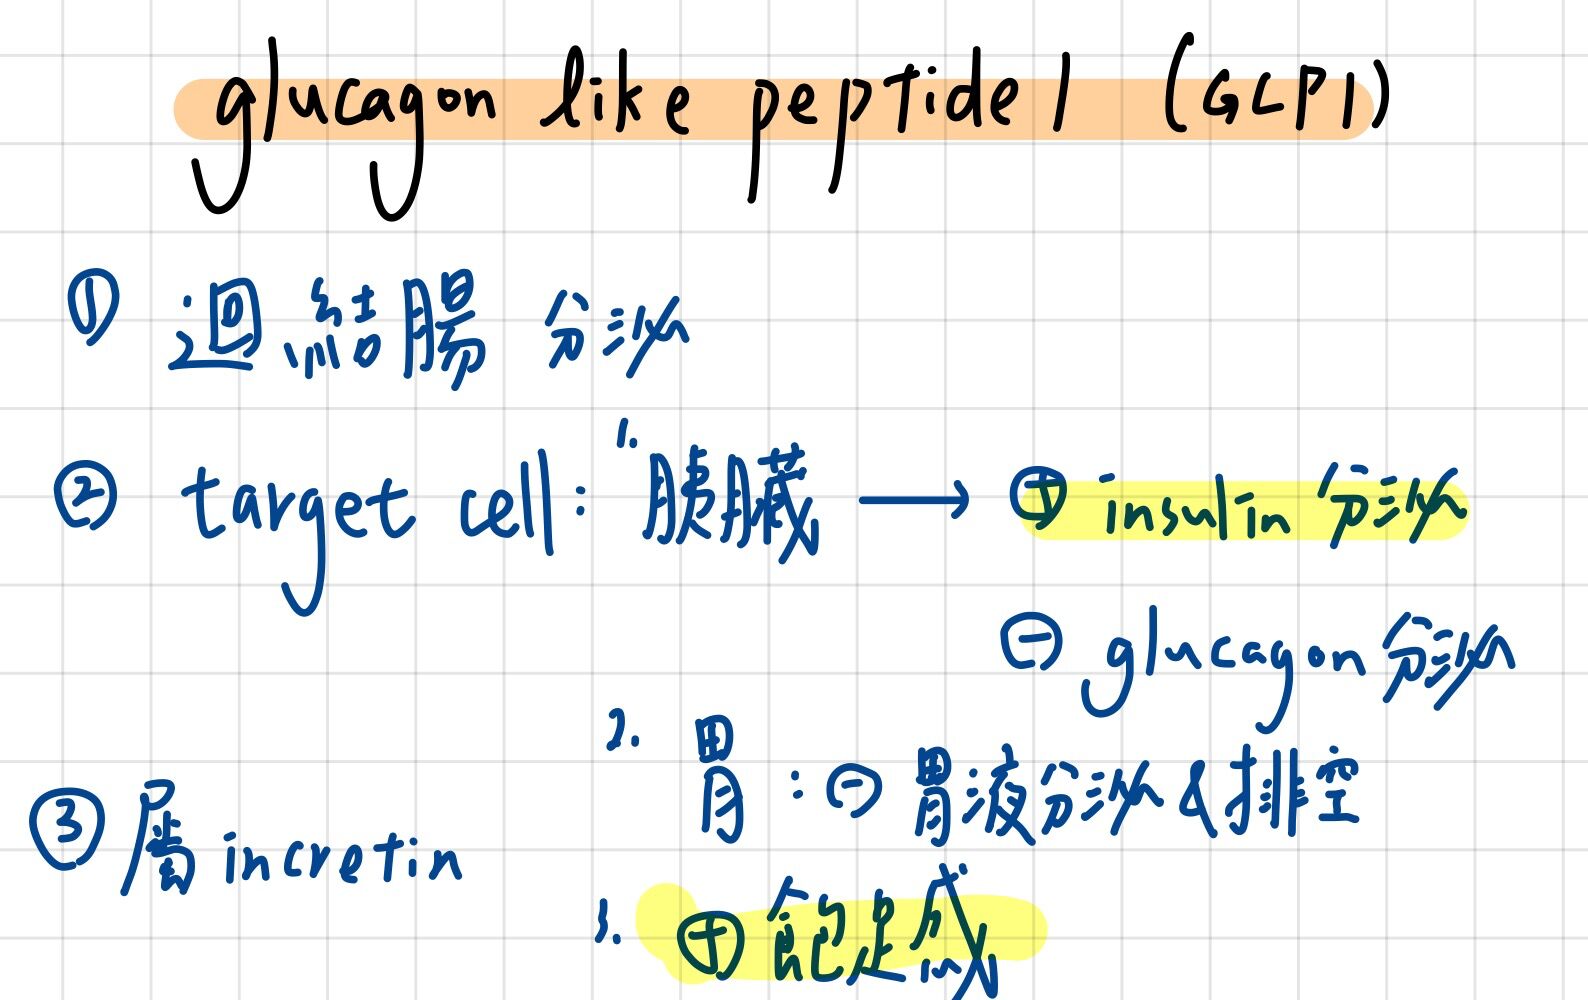 glucagon like peptide 1 (GLP1)
① 迴結腸 分泌
② target cell: 1. 胰臟 → ⊕ insulin 分泌
⊖ glucagon 分泌
2. 胃:⊖ 胃液分泌 & 排空
③ 屬 incretin
3. ⊕ 飽足感